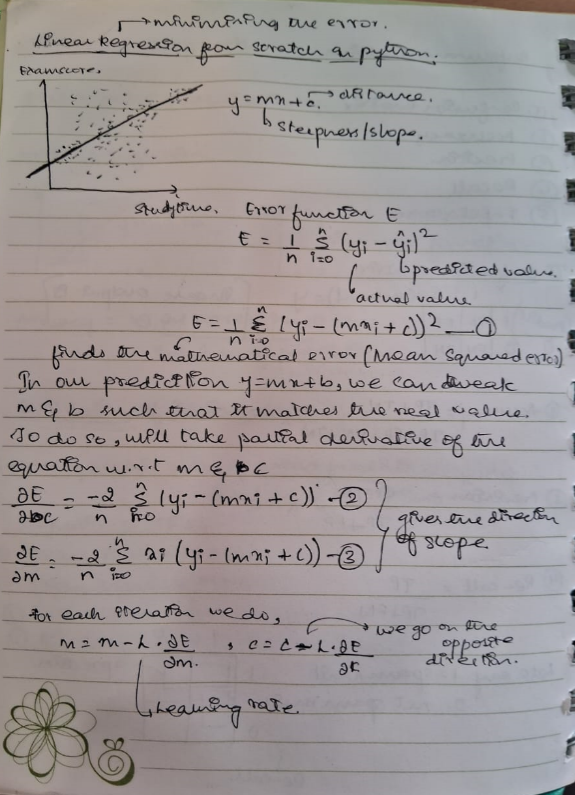 minimizing the error.
Linear Regression from scratch in python.
Examscore.
y = mx + c → distance.
steepness/slope.
Studytime. Error function E
E = 1/n Σ_{i=0}^{n} (yi - ŷi)²
predicted value.
actual value
E = 1/n Σ_{i=0}^{n} (yi - (mxi + c))² — ①
finds the mathematical error (Mean Squared error)
In our prediction y=mx+b, we can tweak
m & b such that it matches the real value.
To do so, we'll take partial derivative of the
equation w.r.t m & c
∂E/∂c = -2/n Σ_{i=0}^{n} (yi - (mxi + c)) - ②
gives the direction
of slope.
∂E/∂m = -2/n Σ_{i=0}^{n} xi (yi - (mxi + c)) - ③
for each iteration we do,
m = m - L . ∂E/∂m. , c = c - L . ∂E/∂c
we go on the
opposite
direction.
Learning rate.